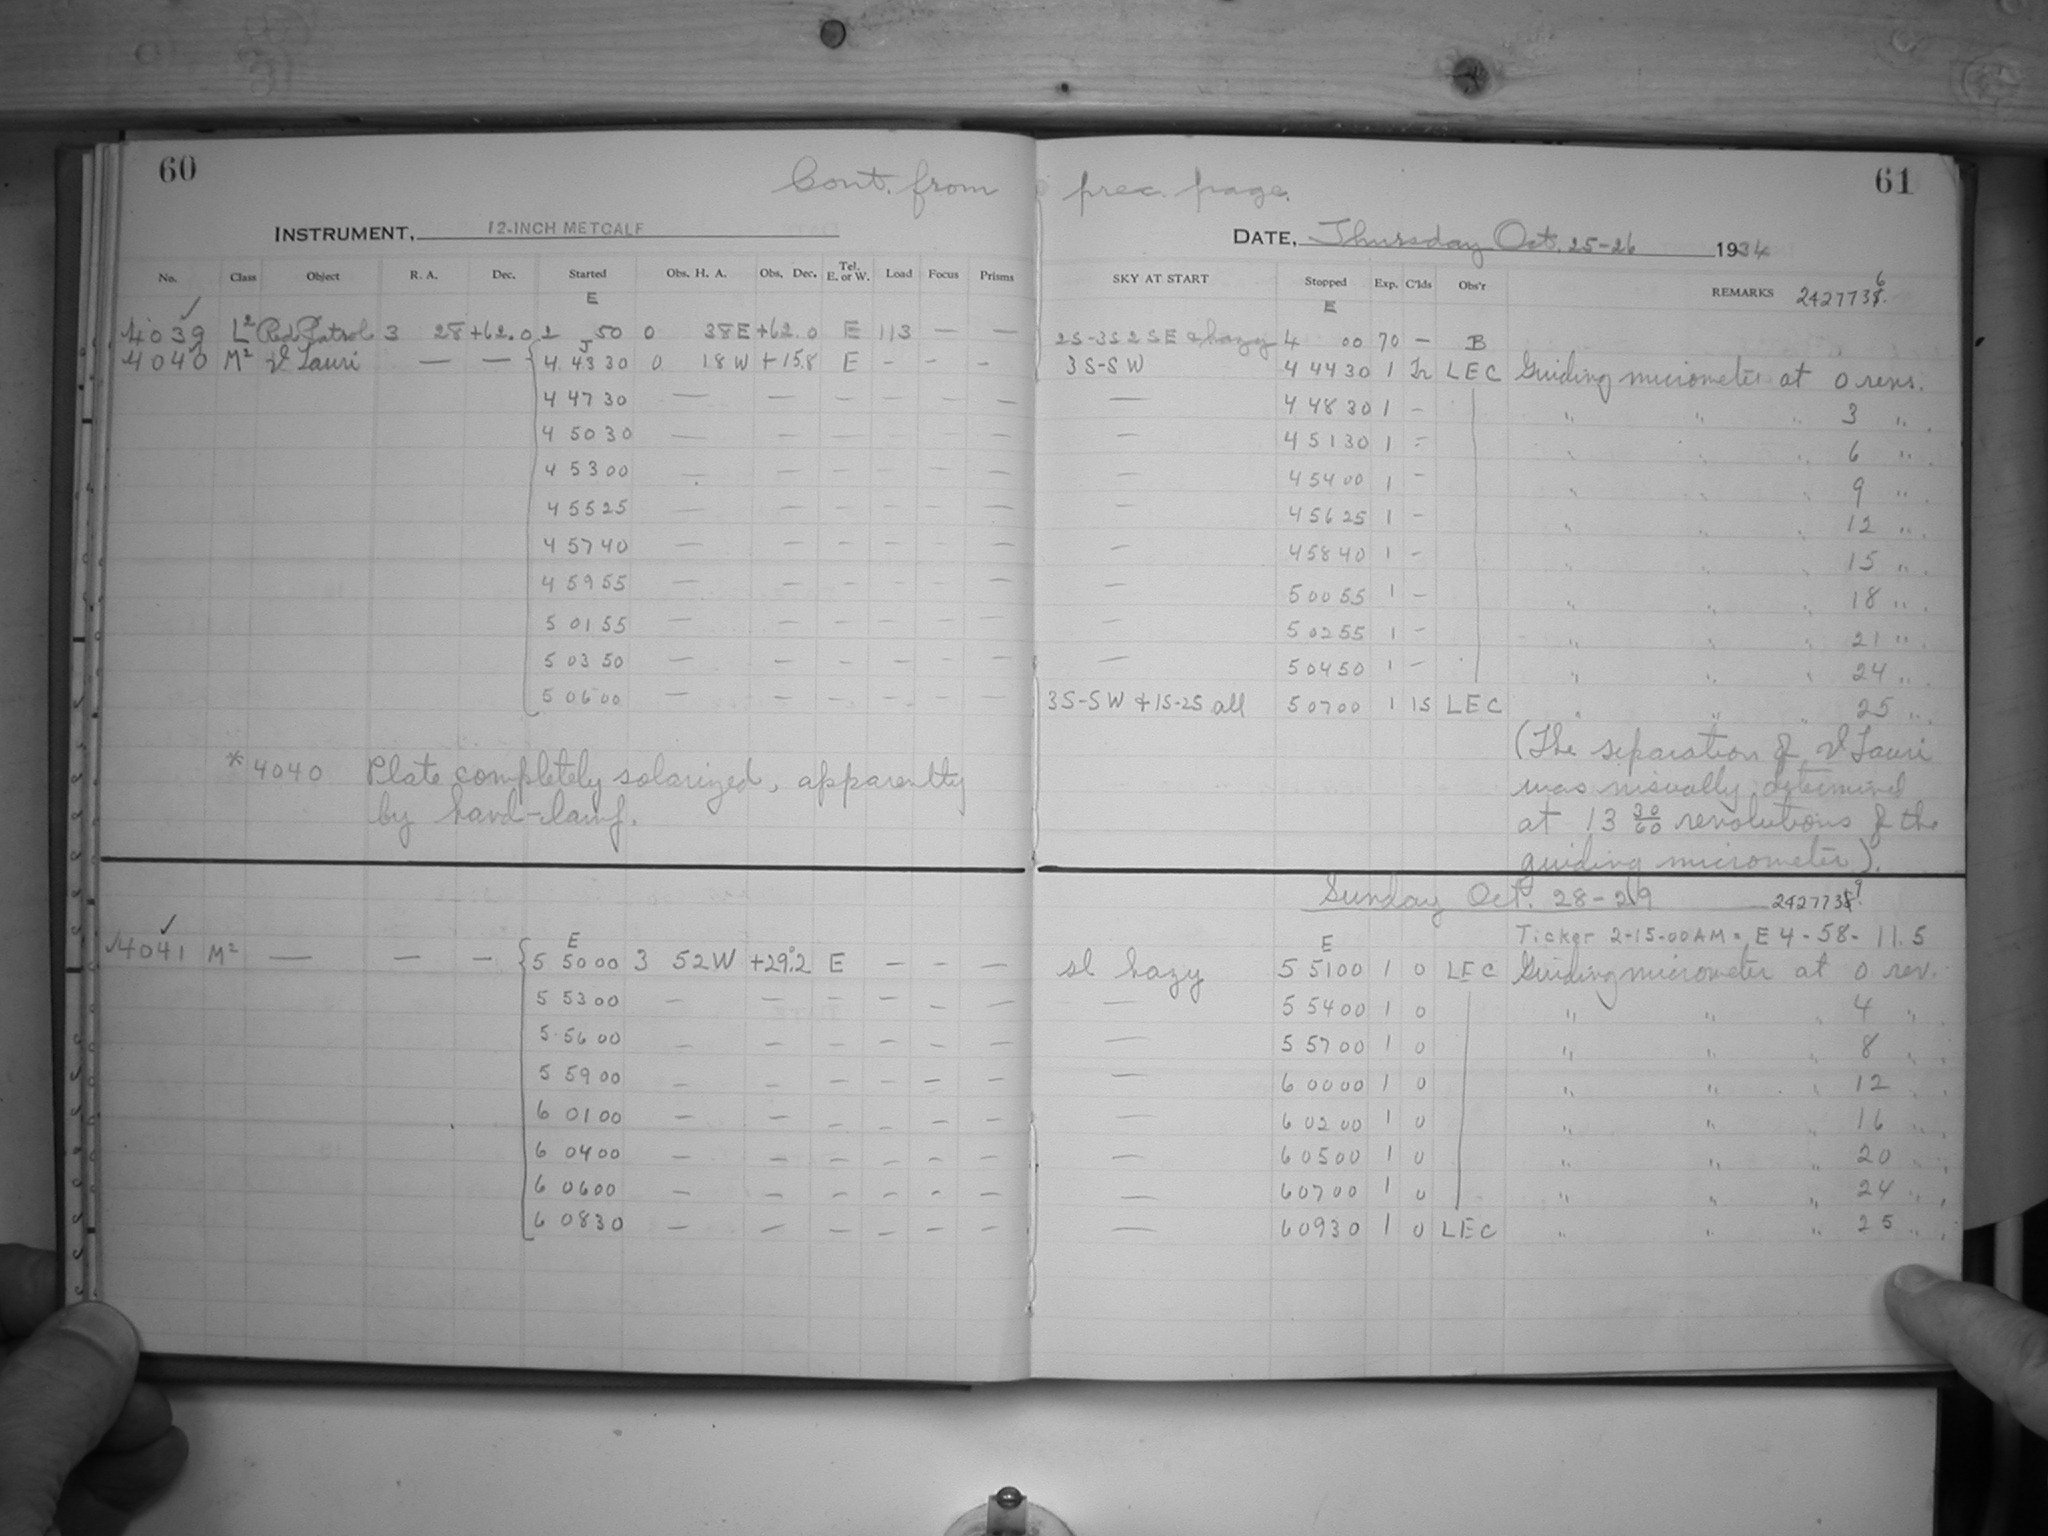 60
61
Cont. from prec. page.
INSTRUMENT, 12-INCH METCALF
DATE, Thursday Oct. 25-26 1934
No. Class Object R. A. Dec. Started Obs. H. A. Obs. Dec. Tel. E. or W. Load Focus Prisms SKY AT START Stopped Exp. C'lds Obs'r REMARKS 2427736.
E E
4039 L² Red Patrol 3 28 +62.0 2 50 0 38E +62.0 E 113 — — 2S-3S 2SE & hazy 4 00 70 — B
4040 M² ϑ Tauri — — 4 43 30 0 18 W +15.8 E - - - 3 S-SW 4 44 30 1 Tr LEC Guiding micrometer at 0 revs.
4 47 30 — — — — — — — 4 48 30 1 - " " " 3 " .
4 50 30 — — — — — — — 4 51 30 1 - " " " 6 " .
4 53 00 — — — — — — — 4 54 00 1 - " " " 9 " .
4 55 25 — — — — — — — 4 56 25 1 - " " " 12 " .
4 57 40 — — — — — — — 4 58 40 1 - " " " 15 " .
4 59 55 — — — — — — — 5 00 55 1 - " " " 18 " .
5 01 55 — — — — — — — 5 02 55 1 - " " " 21 " .
5 03 50 — — — — — — — 5 04 50 1 - " " " 24 " .
5 06 00 — — — — — — 3S-SW & 1S-2S all 5 07 00 1 15 LEC " " " 25 " .
(The separation of ϑ Tauri
was visually determined
at 13 30/60 revolutions of the
guiding micrometer).
*4040 Plate completely solarized, apparently
by hand-lamp.
Sunday Oct. 28-29 2427739.
Ticker 2-15-00AM = E 4-58-11.5
E E
4041 M² — — — 5 50 00 3 52W +29°.2 E - - - sl hazy 5 51 00 1 0 LEC Guiding micrometer at 0 rev.
5 53 00 — — — — — — — 5 54 00 1 0 " " " 4 " .
5 56 00 — — — — — — — 5 57 00 1 0 " " " 8 " .
5 59 00 — — — — — — — 6 00 00 1 0 " " " 12 " .
6 01 00 — — — — — — — 6 02 00 1 0 " " " 16 " .
6 04 00 — — — — — — — 6 05 00 1 0 " " " 20 " .
6 06 00 — — — — — — — 6 07 00 1 0 " " " 24 " .
6 08 30 — — — — — — — 6 09 30 1 0 LEC " " " 25 " .